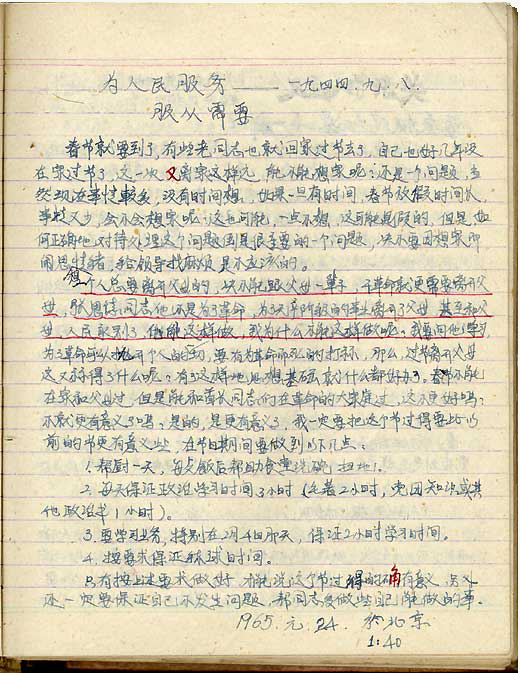 为人民服务 —— 一九四四.九.八.
服从需要
春节就要到了，有些老同志也就回家过节去了，自己也好几年没
在家过节了，这一次又离家这样近，能不能想家呢？还是一个问题，当
然现在事情较多，没有时间想，如果一旦有时间，春节放假时间长，
事较又少，会不会想家呢？这也可能，一点不想，这可能是假的，但是，如
何正确地对待处理这个问题因是很重要的一个问题，决不要因想家而
闹思想情绪，给领导找麻烦是不应该的。
一个人总要离开父母的，决不能跟父母一辈子，干革命就更需要离开父
母，张思德同志他还是为了革命，为了为阶级的事业离开了父母，甚至和父
母、人民永别了，他能这样做，我为什么不能这样做呢？我要向他学习
为了革命可以抛开个人的一切，要有为革命而死的打标，那么，过节离开父母
这又算得了什么呢？有了这样地思想基础就什么都好办了。春节不能
在家和父母过，但是能和首长同志们在革命的大家庭过，这不更好吗？
不就更有意义了吗？是的，是更有意义，我一定要把这个节过得要比以
前的节更有意义些，在节日期间要做到以下几点：
1. 帮厨一天，每天饭后帮助食堂洗碗，扫地。
2. 每天保证政治学习时间3小时（毛著2小时，党团知识或其
他政治书1小时）。
3. 要学习业务，特别在2月4日那天，保证2小时学习时间。
4. 按要求保证练球时间。
只有按上述要求做好，才能说这个节过得的确有意义，另外
还一定要保证自己不发生问题，帮同志们做些自己能做的事。
1965. 元. 24. 於北京
1:40